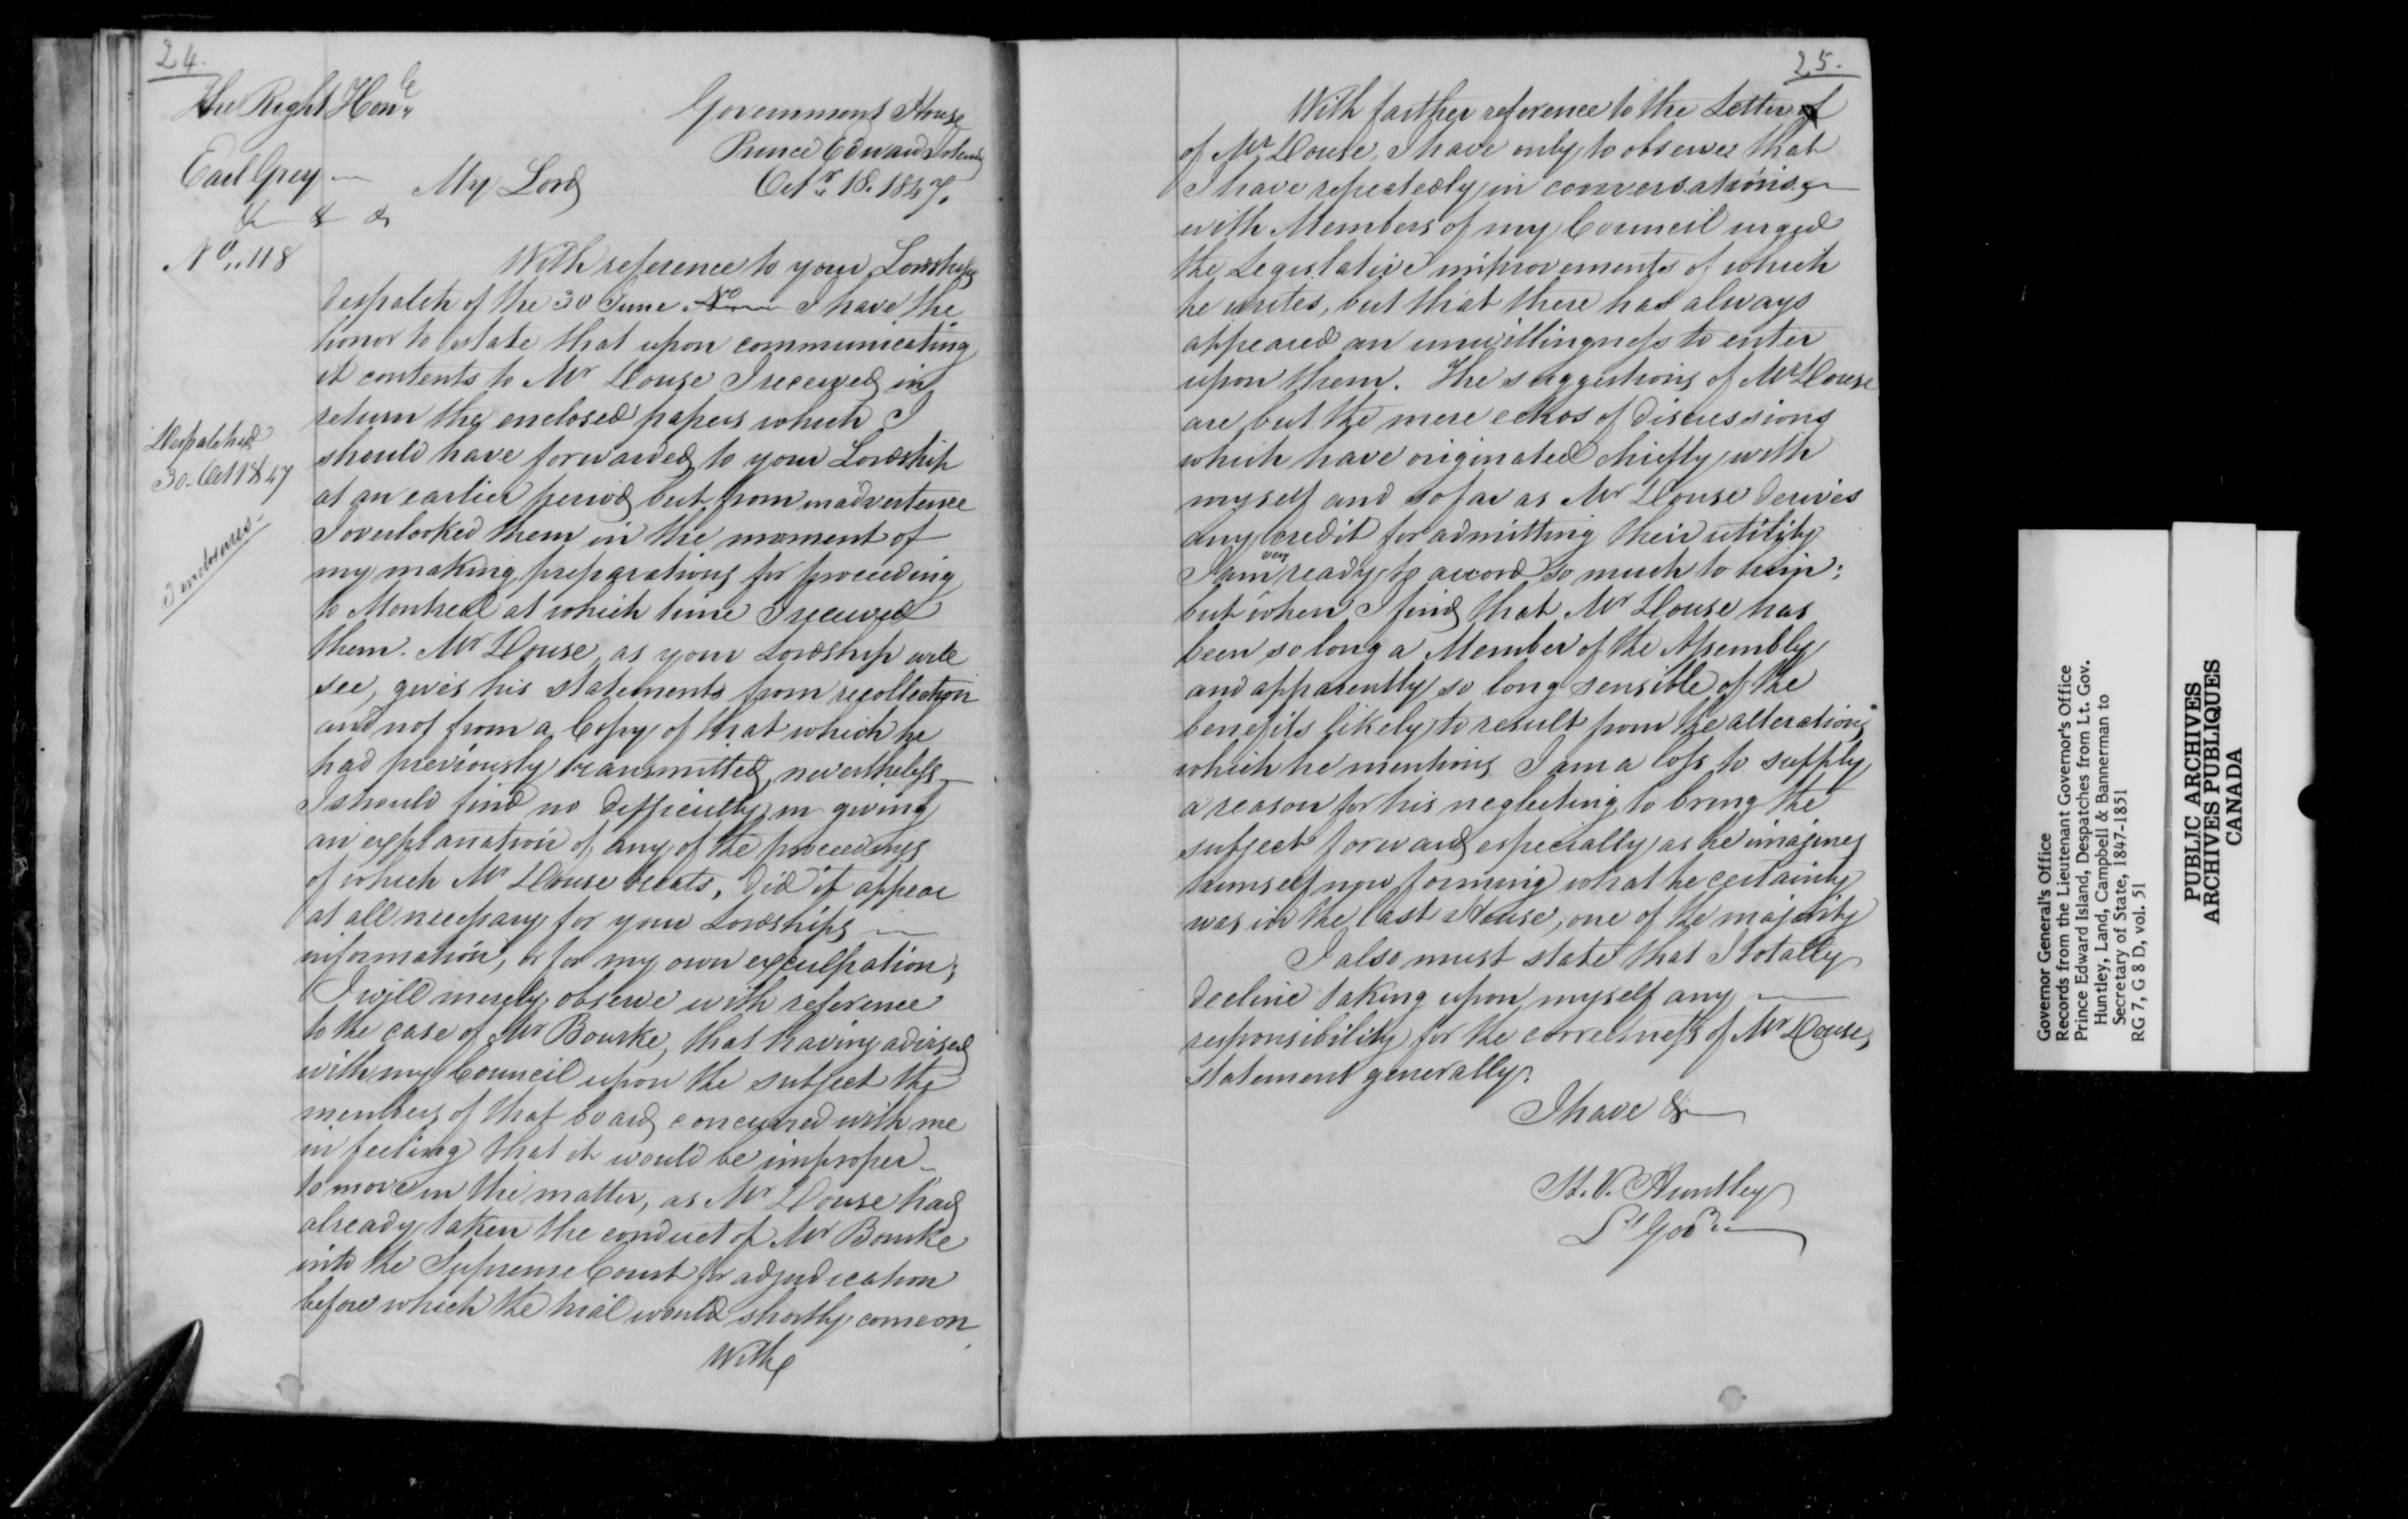 24.
The Right Hon.le
Earl Grey —
& & &
No. 118
Government House
Prince Edward Island
Octr. 18. 1847.
My Lord
With reference to your Lordships
despatch of the 30 June No I have the
honor to state that upon communicating
it contents to Mr Douse I received in
return the enclosed papers which I
should have forwarded to your Lordship
at an earlier period but from inadvertence
I overlooked them in the moment of
my making preparations for proceeding
to Montreal at which time I received
them. Mr Douse, as your Lordship will
see, gives his statements from recollection
and not from a Copy of that which he
had previously transmitted, nevertheless
I should find no difficulty in giving
an explanation of any of the proceedings
of which Mr Douse treats, did it appear
at all necessary for your Lordships —
information, or for my own exculpation;
I will merely observe with reference
to the case of Mr Bourke, that having advised
with my Council upon the subject the
members of that board concurred with me
in feeling that it would be improper
to move in the matter, as Mr Douse had
already taken the conduct of Mr Bourke
into the Supreme Court for adjudication
before which the trial would shortly come on.
With
Despatched
30. Oct 1847
3 enclosures.
25.
With farther reference to the Letter of
of Mr Douse, I have only to observe that
I have repeatedly in conversations —
with Members of my Council urged
the Legislative improvements of which
he writes, but that there has always
appeared an unwillingness to enter
upon them. The suggestions of Mr Douse
are but the mere echos of discussions
which have originated chiefly with
myself and so far as Mr Douse derives
any credit for admitting their utility
I am very ready to accord so much to him:
but when I find that Mr Douse has
been so long a Member of the Assembly
and apparently so long sensible of the
benefits likely to result from the alterations
which he mentions I am a loss to supply
a reason for his neglecting to bring the
subject forward especially as he imagines
himself now forming what he certainly
was in the last House, one of the majority
I also must state that I totally
decline taking upon myself any —
responsibility for the correctness of Mr Douse,
statement generally.
I have &c
H. V. Huntley
Lt Govr.
Governor General's Office
Records from the Lieutenant Governor's Office
Prince Edward Island, Despatches from Lt. Gov.
Huntley, Land, Campbell & Bannerman to
Secretary of State, 1847-1851
RG 7, G 8 D, vol. 51
PUBLIC ARCHIVES
ARCHIVES PUBLIQUES
CANADA